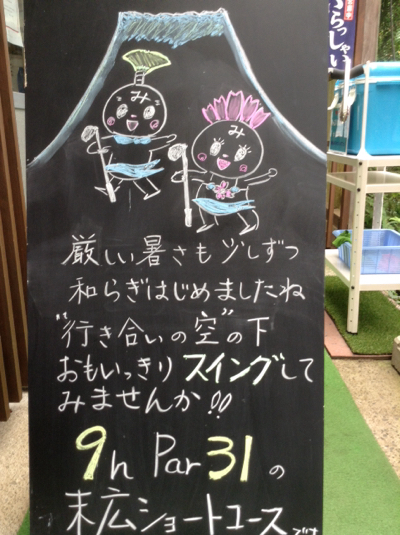 み
み
いらっしゃい
厳しい暑さも少しずつ
和らぎはじめましたね
"行き合いの空"の下
おもいっきりスイングして
みませんか!!
9h Par31の
末広ショートコース
です